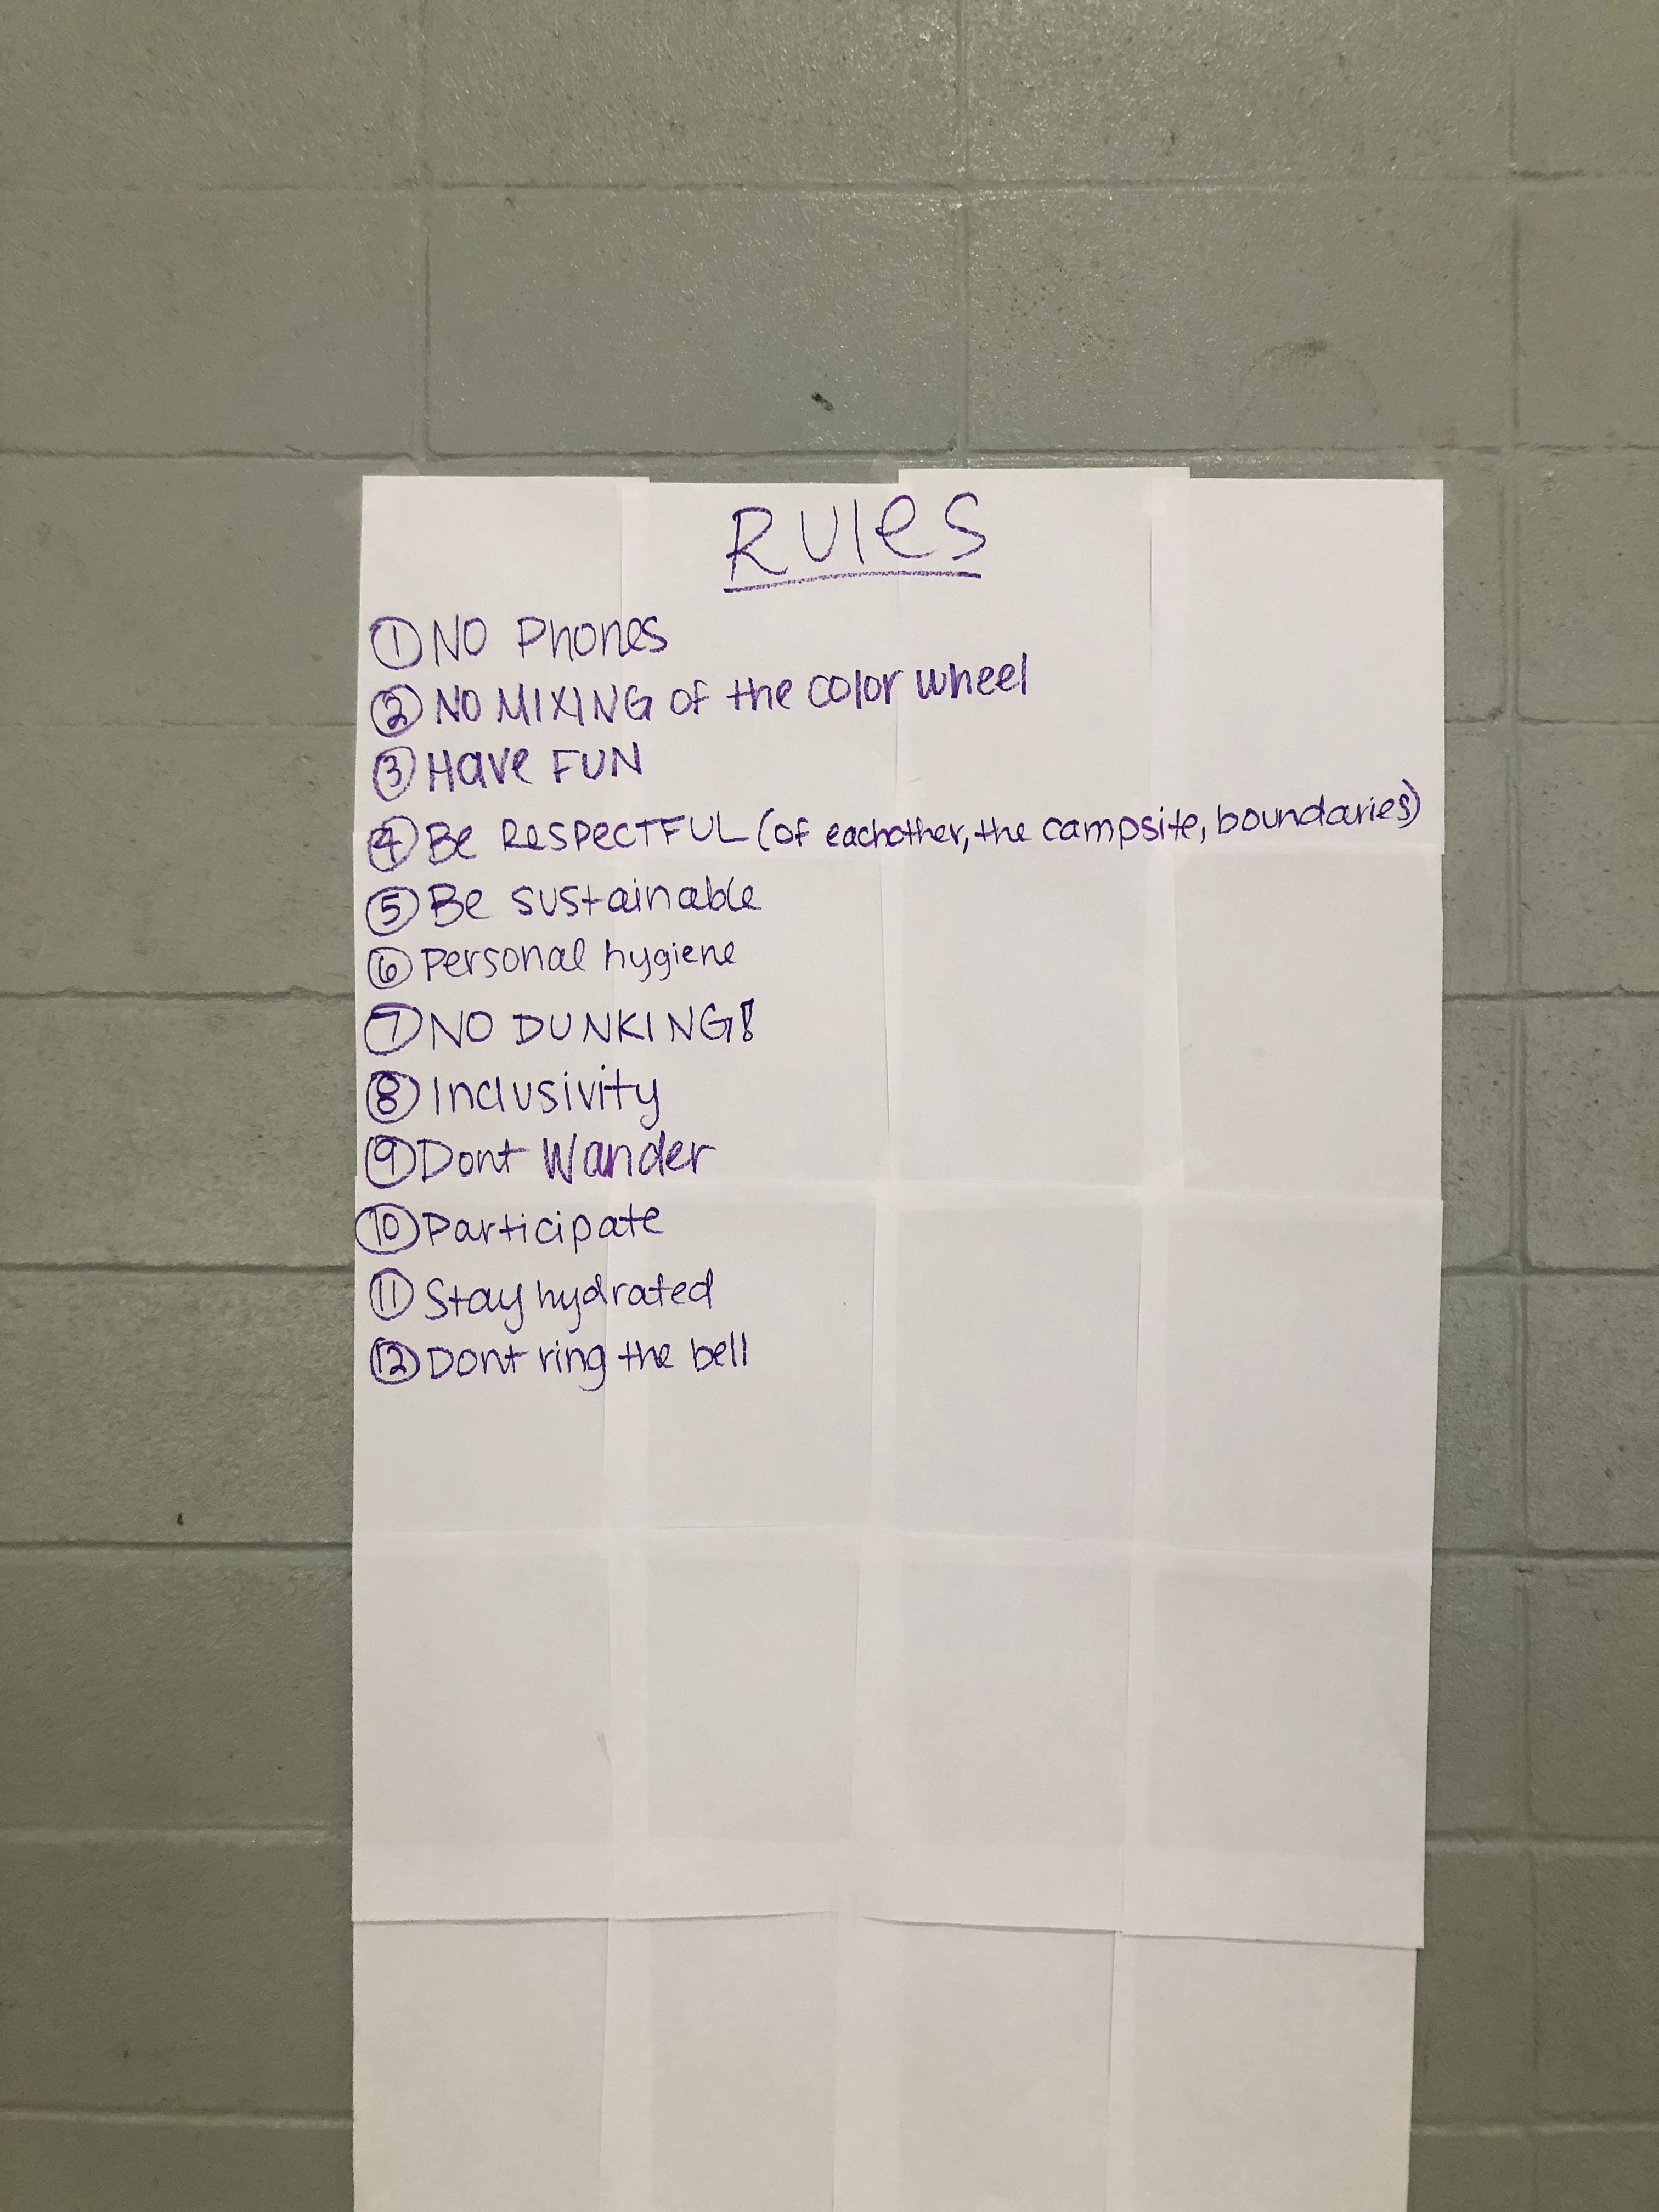 Rules
① NO Phones
② NO MIXING of the color wheel
③ Have FUN
④ Be RESPECTFUL (of eachother, the campsite, boundaries)
⑤ Be sustainable
⑥ Personal hygiene
⑦ NO DUNKING!
⑧ Inclusivity
⑨ Dont Wander
⑩ Participate
⑪ Stay hydrated
⑫ Dont ring the bell